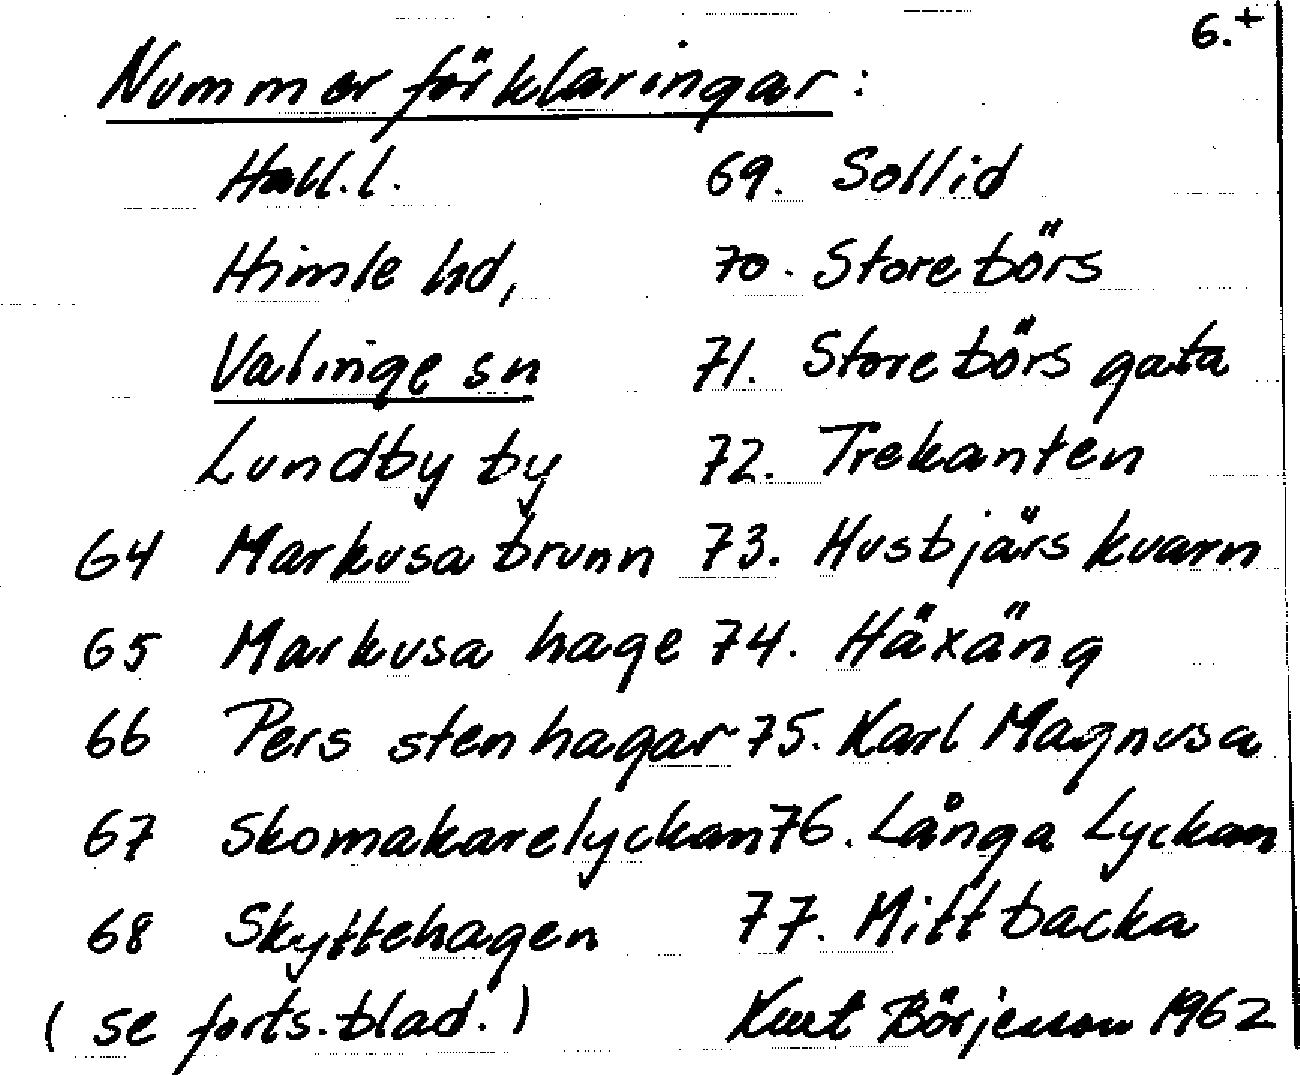 6.+
Nummerförklaringar:
Hall.l.
Himle hd,
Valinge sn
Lundby by
64 Markusa brunn
65 Markusa hage
66 Pers stenhagar
67 Skomakarelyckan
68 Skyttehagen
(se forts.blad.)
69. Sollid
70. Storebörs
71. Storebörs gata
72. Trekanten
73. Husbjärs kvarn
74. Häxäng
75. Karl Magnusa
76. Långa Lyckan
77. Mittbacka
Kurt Börjesson 1962